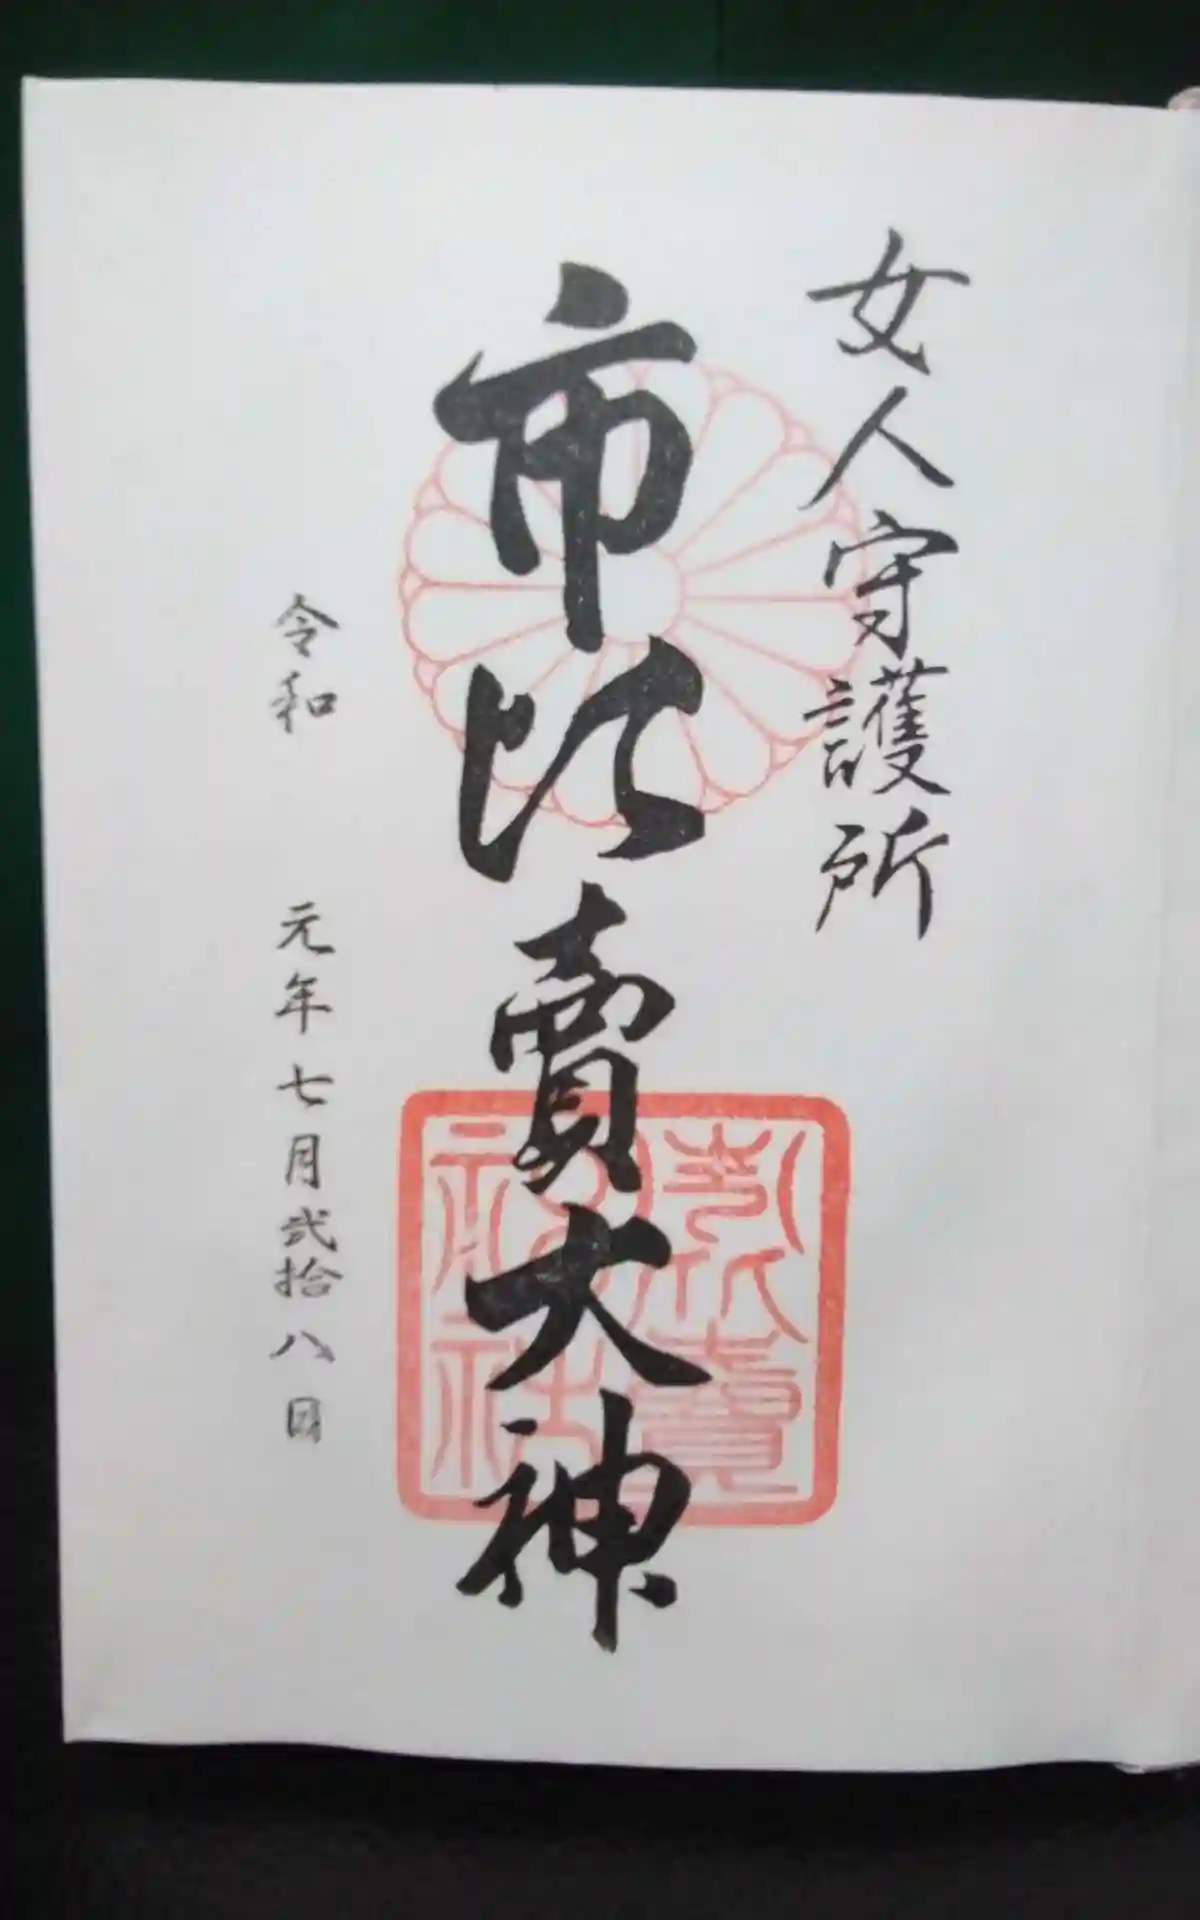 女人守護所
市比賣大神
市比賣神社
令和元年七月弐拾八日